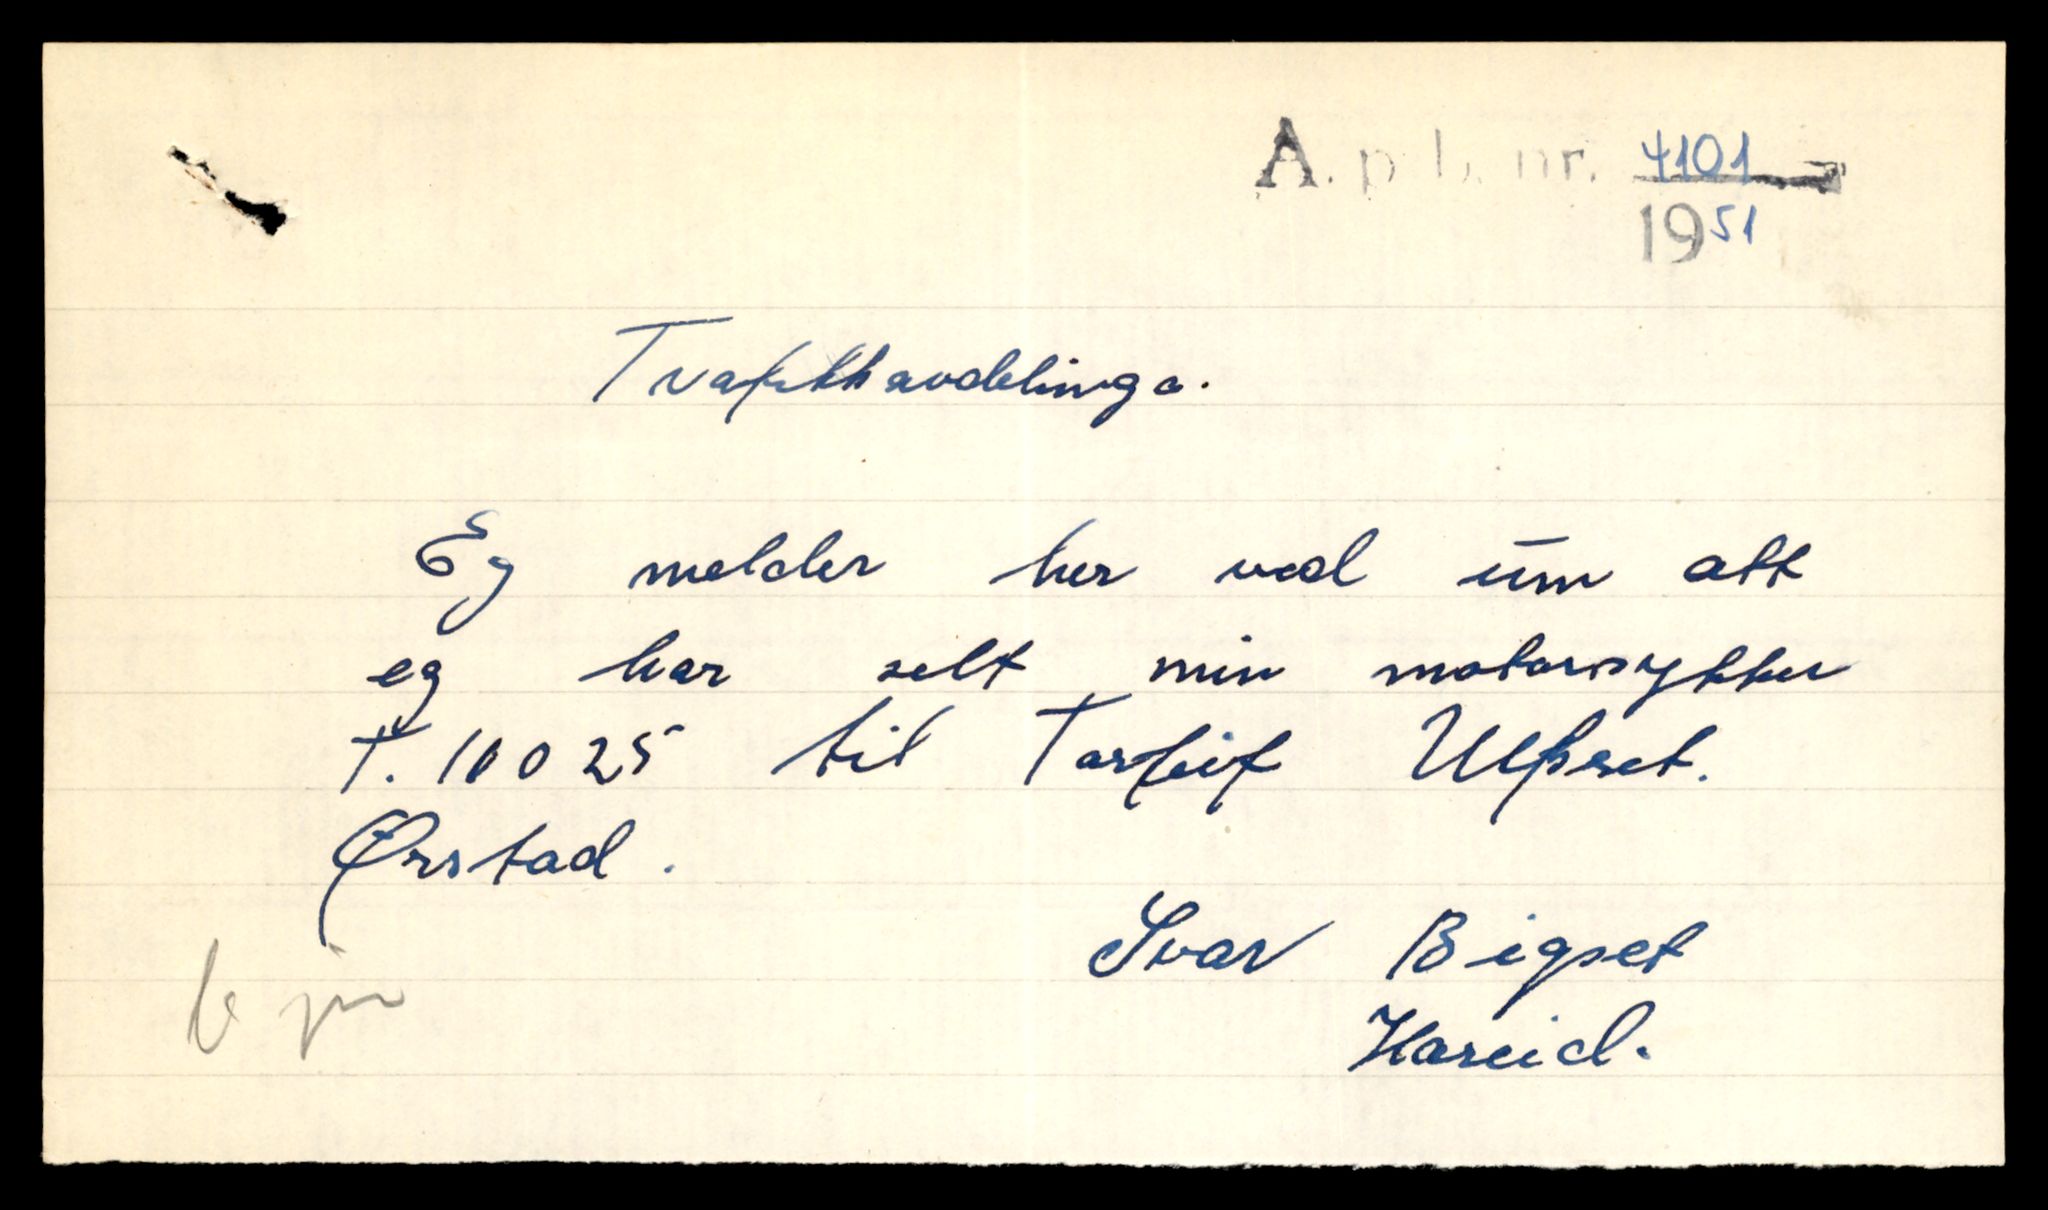 A. p. b. nr. 4101
1951
Trafikkavdelinga.
Eg melder her ved um att
eg har selt min motorsykkel
T. 10025 til Torleif Ulfset.
Ørstad.
Ivar Bigset
Hareid.